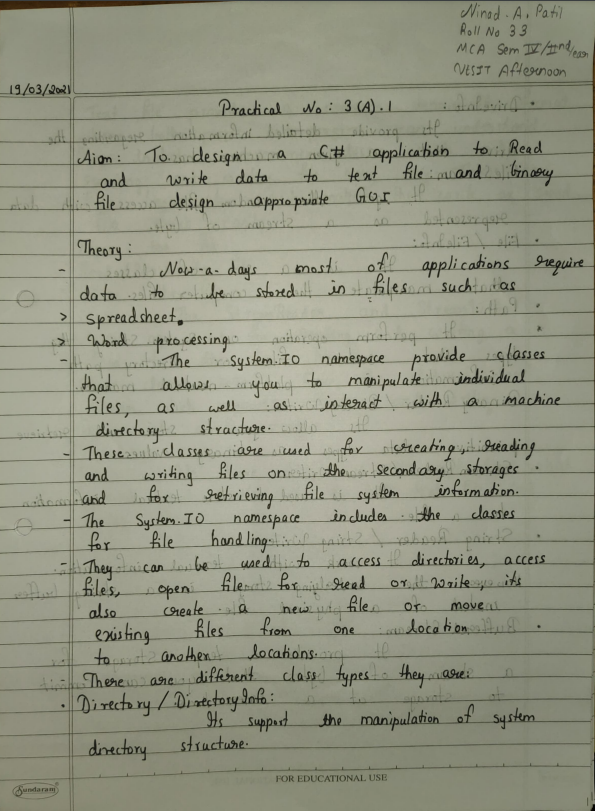 Ninad. A. Patil
Roll No 33
MCA Sem IV/IInd year
VESIT Afternoon
19/03/2021
Practical No : 3(A).1
Aim: To design a C# application to Read
and write data to text file and binary
file design appropriate GUI
Theory:
- Now-a-days most of applications require
data to be stored in files such as
> Spreadsheet.
> Word processing.
- The System.IO namespace provide classes
that allows you to manipulate individual
files, as well as interact with a machine
directory structure.
- These classes are used for creating, reading
and writing files on the secondary storages
and for retrieving file system information.
- The System.IO namespace includes the classes
for file handling.
- They can be used to access directories, access
files, open file for read or write, its
also create a new file or move
existing files from one location
to another locations.
- There are different class types they are:
• Directory / DirectoryInfo:
Its support the manipulation of system
directory structure.
Sundaram
FOR EDUCATIONAL USE